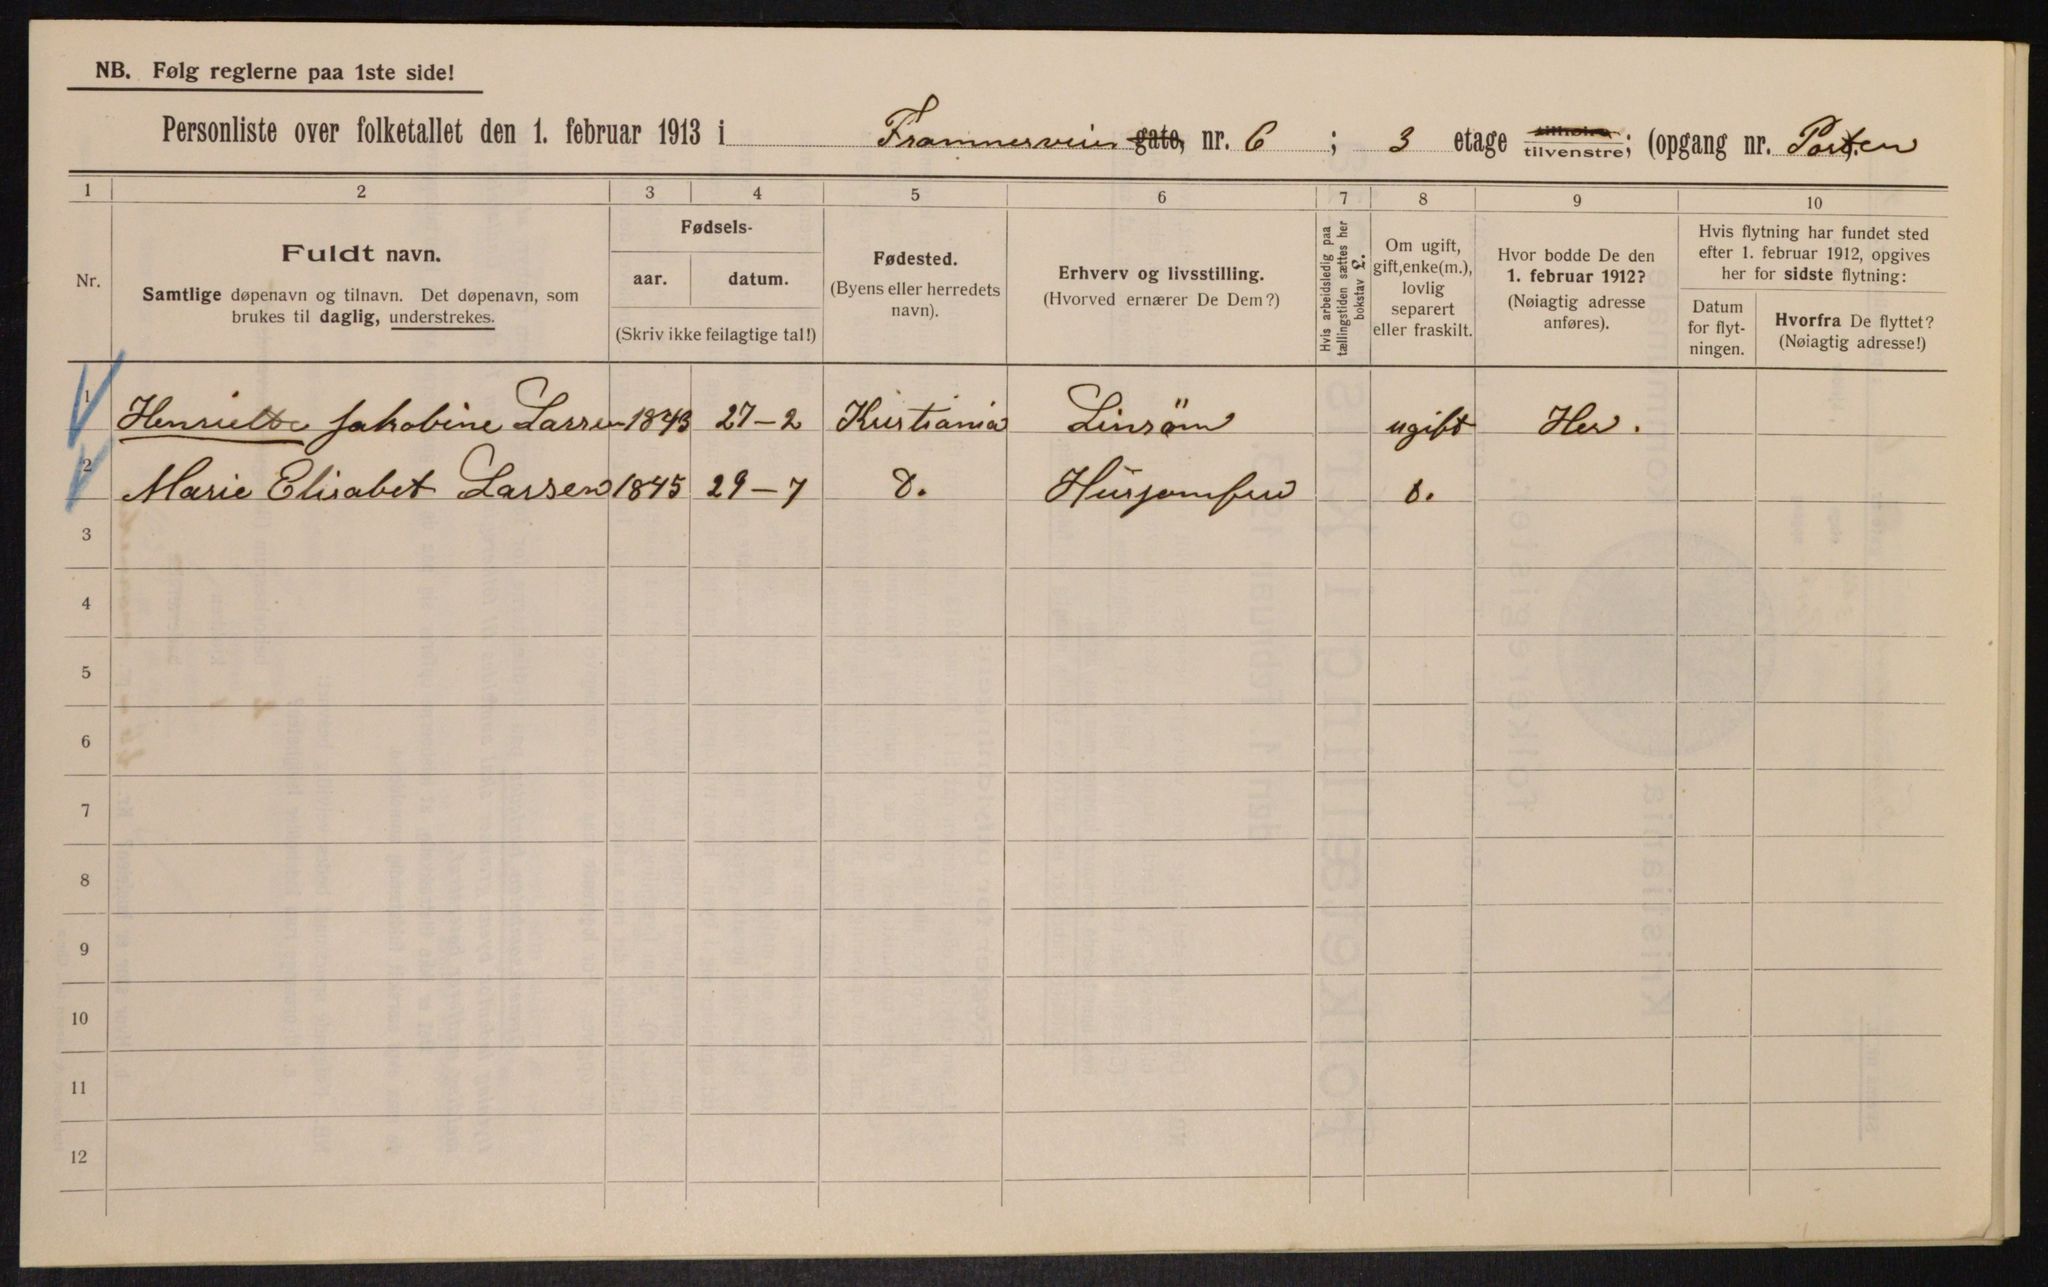 NB. Følg reglerne paa 1ste side!
Personliste over folketallet den 1. februar 1913 i Frognerveien gate, nr. 6 ; 3 etage tilhøire tilvenstre; (opgang nr. Porten
1 2 3 4 5 6 7 8 9 10
Nr.
Fuldt navn.
Samtlige døpenavn og tilnavn. Det døpenavn, som
brukes til daglig, understrekes.
Fødsels-
aar. datum.
(Skriv ikke feilagtige tal!)
Fødested.
(Byens eller herredets
navn).
Erhverv og livsstilling.
(Hvorved ernærer De Dem?)
Hvis arbeidsledig paa
tællingstiden sættes her
bokstav L.
Om ugift,
gift, enke(m.),
lovlig
separert
eller fraskilt.
Hvor bodde De den
1. februar 1912?
(Nøiagtig adresse
anføres).
Hvis flytning har fundet sted
efter 1. februar 1912, opgives
her for sidste flytning:
Datum
for flyt-
ningen.
Hvorfra De flyttet?
(Nøiagtig adresse!)
1 Henriette Jakobine Larsen 1843 27-2 Kristiania Linsøm ugift Her.
2 Marie Elisabet Larsen 1845 29-7 d. Husjomfru d.
3
4
5
6
7
8
9
10
11
12